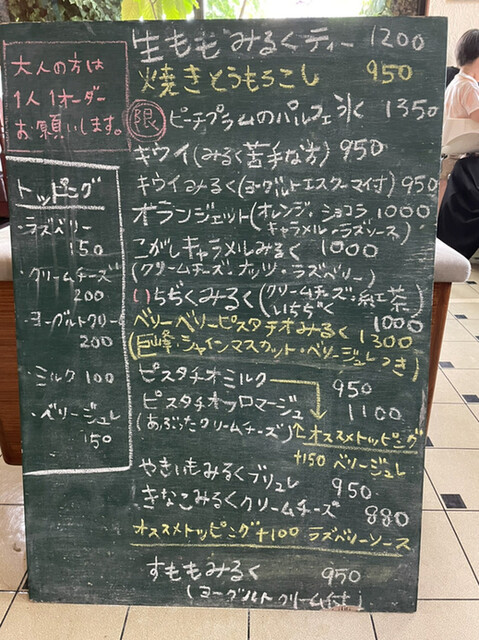 大人の方は
1人1オーダー
お願いします。
トッピング
・ラズベリー
150
・クリームチーズ
200
・ヨーグルトクリー
200
・ミルク 100
・ベリージュレ
150
生ももみるくティー 1200
焼きとうもろこし 950
限 ピーチプラムのパルフェ氷 1350
キウイ(みるく苦手な方) 950
キウイみるく(ヨーグルトエスプーマ付) 950
オランジェット(オレンジ・ショコラ 1000
キャラメル・ラズソース)
こがしキャラメルみるく 1000
(クリームチーズ・ナッツ・ラズベリー)
いちぢくみるく(クリームチーズ・紅茶
いちぢく) 1000
ベリーベリーピスタチオみるく 1300
(巨峰・シャインマスカット・ベリージュレつき)
ピスタチオミルク 950
ピスタチオフロマージュ 1100
(あぶったクリームチーズ) ↑オススメトッピング
+150 ベリージュレ
やきいもみるくブリュレ 950
きなこみるくクリームチーズ 880
オススメトッピング+100 ラズベリーソース
すももみるく 950
(ヨーグルトクリーム付)